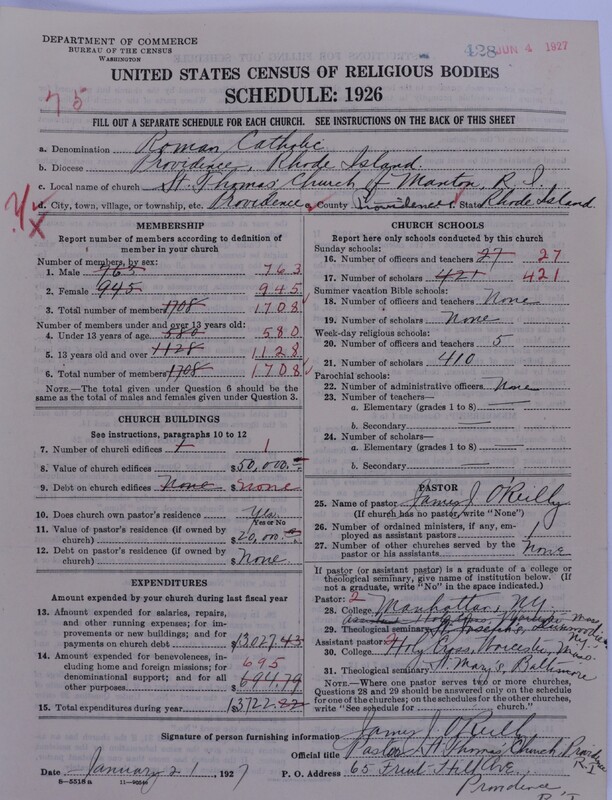 DEPARTMENT OF COMMERCE
BUREAU OF THE CENSUS
WASHINGTON
428 JUN 4 1927
UNITED STATES CENSUS OF RELIGIOUS BODIES
SCHEDULE: 1926
75
FILL OUT A SEPARATE SCHEDULE FOR EACH CHURCH. SEE INSTRUCTIONS ON THE BACK OF THIS SHEET
a. Denomination Roman Catholic
b. Diocese Providence, Rhode Island.
c. Local name of church St. Thomas Church of Manton, R.I.
d. City, town, village, or township, etc. Providence e. County Providence f. State Rhode Island
MEMBERSHIP
Report number of members according to definition of
member in your church
Number of members, by sex:
1. Male 763 763
2. Female 945 945
3. Total number of members 1708 1708
Number of members under and over 13 years old:
4. Under 13 years of age 580 580
5. 13 years old and over 1128 1128
6. Total number of members 1708 1708
NOTE.—The total given under Question 6 should be
same as the total of males and females given under Question 3.
CHURCH BUILDINGS
See instructions, paragraphs 10 to 12
7. Number of church edifices 1 1
8. Value of church edifices $50,000.
9. Debt on church edifices None $ None
10. Does church own pastor's residence Yes.
Yes or No
11. Value of pastor's residence (if owned by
church) $20,000.
12. Debt on pastor's residence (if owned by
church) $ None
EXPENDITURES
Amount expended by your church during last fiscal year
13. Amount expended for salaries, repairs,
and other running expenses; for im-
provements or new buildings; and for
payments on church debt $13027.43
14. Amount expended for benevolences,
including home and foreign missions; for
denominational support; and for all
other purposes $ 695
694.79
15. Total expenditures during year 13722.
CHURCH SCHOOLS
Report here only schools conducted by this church
Sunday schools:
16. Number of officers and teachers 27 27
17. Number of scholars 421 421
Summer vacation Bible schools:
18. Number of officers and teachers None
19. Number of scholars None
Week-day religious schools:
20. Number of officers and teachers 5
21. Number of scholars 410
Parochial schools:
22. Number of administrative officers None
23. Number of teachers—
a. Elementary (grades 1 to 8)
b. Secondary
24. Number of scholars—
a. Elementary (grades 1 to 8)
b. Secondary
PASTOR
25. Name of pastor James J. O'Reilly
(If church has no pastor, write "None")
26. Number of ordained ministers, if any, em-
ployed as assistant pastors 1
27. Number of other churches served by the
pastor or his assistants None
If pastor (or assistant pastor) is a graduate of a college or
theological seminary, give name of institution below. (If
not a graduate, write "No" in the space indicated.)
Pastor: 2
28. College Manhattan, N.Y.
29. Theological seminary St. Joseph's,
N.Y.
Assistant pastor:
30. College Holy Cross, Worcester, Mass.
31. Theological seminary St. Mary's, Baltimore
NOTE.—Where one pastor serves two or more churches,
Questions 28 and 29 should be answered only on the schedule
for one of the churches; on the schedules for the other churches,
write "See schedule for church."
Signature of person furnishing information James J. O'Reilly
Official title Pastor St. Thomas Church, Providence
R.I
Date January 21, 1927 P. O. Address 65 Fruit Hill Ave.,
Providence
R.I.